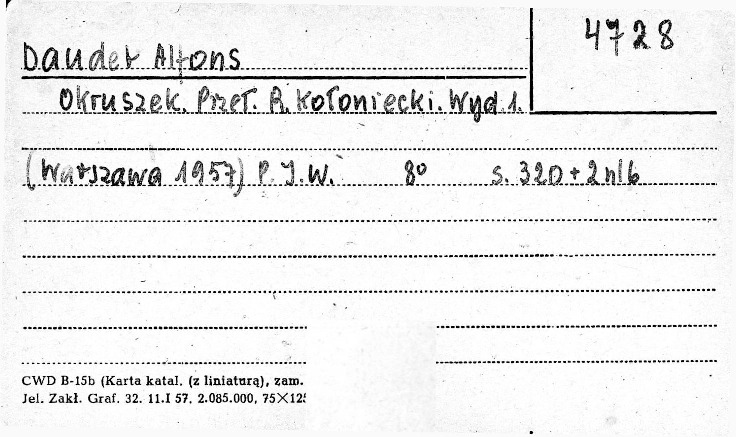 4728
Daudet Alfons
Okruszek. Przeł. R. Kołoniecki. Wyd 1.
(Warszawa 1957) P.I.W. 8° s. 320+2nlb
CWD B-15b (Karta katal. (z liniaturą), zam.
Jel. Zakł. Graf. 32. 11.I 57. 2.085.000, 75×125